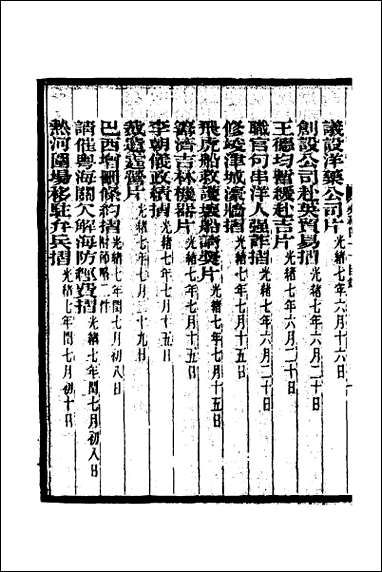 議設洋藥公司片 光緒七年六月十六日
創設公司赴英貿易摺 光緒七年六月二十日
王德均暫緩赴吉片 光緒七年六月二十日
職官句串洋人强詐摺 光緒七年六月二十日
修峻津城濠牆摺 光緒七年七月十五日
飛虎船救護難船請獎片 光緒七年七月十五日
籌濟吉林機器片 光緒七年七月十五日
李朝儀政績摺 光緒七年七月二十九日
裁遣達醫片 光緒七年七月
巴西增刪條約摺 附節略二件 光緒七年閏七月初八日
請催粵海關欠解海防經費摺 光緒七年閏七月初八日
熱河圍場移駐弁兵摺 光緒七年閏七月初十日